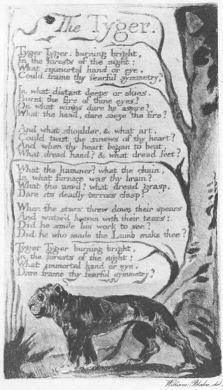 The Tyger.
Tyger Tyger. burning bright,
In the forests of the night:
What immortal hand or eye.
Could frame thy fearful symmetry?
In what distant deeps or skies.
Burnt the fire of thine eyes?
On what wings dare he aspire?
What the hand, dare sieze the fire?
And what shoulder, & what art,
Could twist the sinews of thy heart?
And when thy heart began to beat,
What dread hand? & what dread feet?
What the hammer? what the chain,
In what furnace was thy brain?
What the anvil? what dread grasp,
Dare its deadly terrors clasp!
When the stars threw down their spears
And water'd heaven with their tears:
Did he smile his work to see?
Did he who made the Lamb make thee?
Tyger Tyger burning bright,
In the forests of the night:
What immortal hand or eye,
Dare frame thy fearful symmetry?
William Blake,